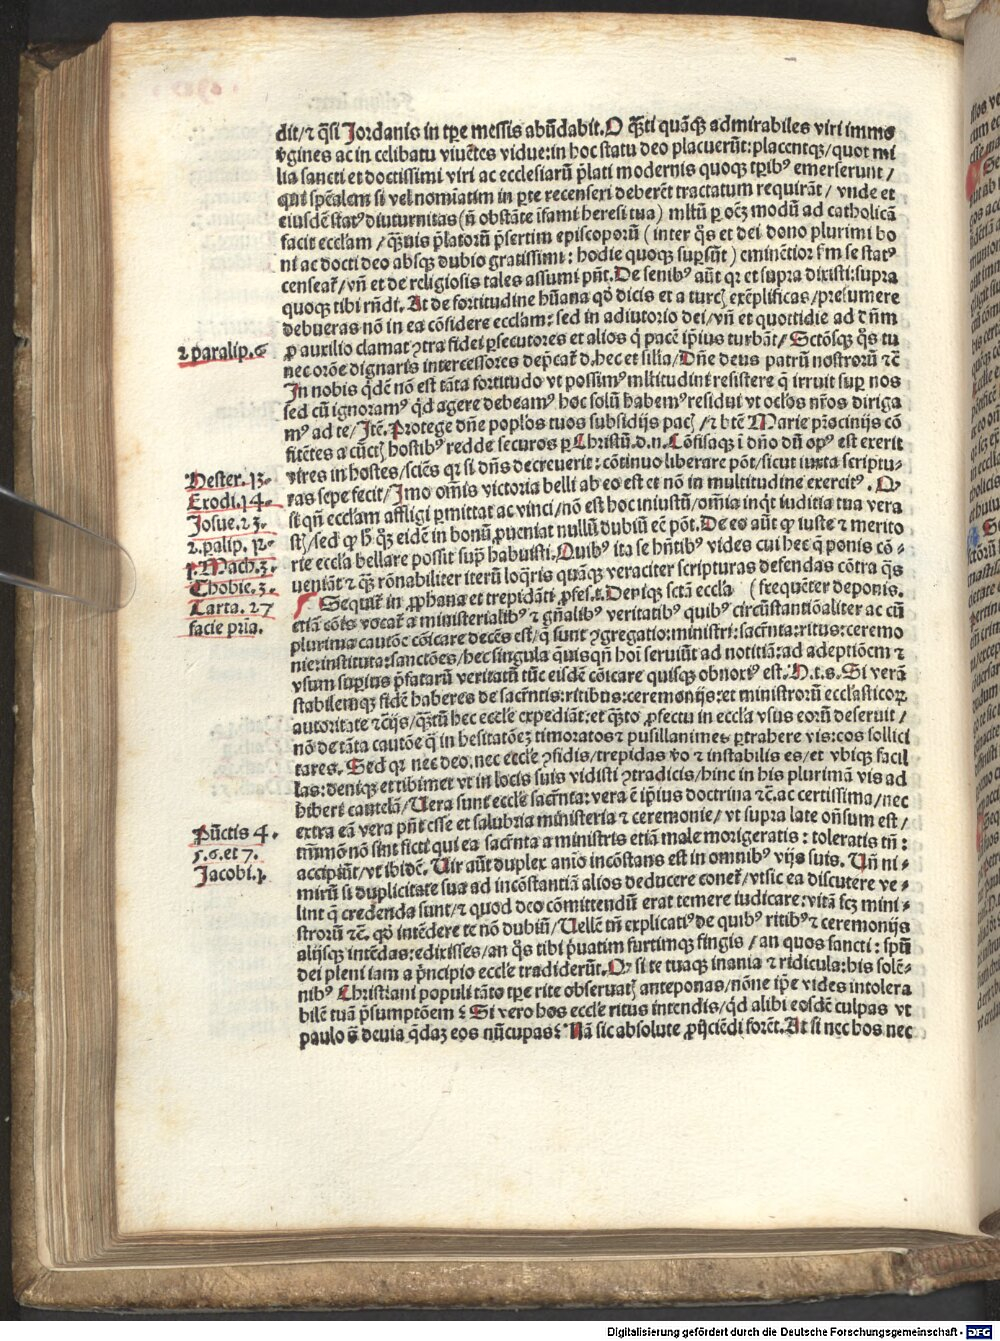 dit/⁊ q̄si Jordanis in tꝑe messis abūdabit. O q̄ti quāqꝫ admirabiles viri immo
v̓gines ac in celibatu viuētes vidue: in hoc statu deo placuerūt: placentqꝫ/ quot mi
lia sancti et doctissimi viri ac ecclesiarū p̄lati modernis quoqꝫ tꝑibꝰ emerserunt/
qui sp̄ealem si vel nomīatim in ꝑte recenseri deberēt tractatum requirāt/ vnde et
eiusdē statꝰ diuturnitas (n̄ obstāte īfami heresi tua) mltū ꝑ oēꝫ modū ad catholicā
facit eccl'am/ q̄uis p̄latorū p̄sertim episcoporū (inter q̄s et dei dono plurimi bo
ni ac docti deo absqꝫ dubio gratissimi: hodie quoqꝫ suꝑsūt) eminētior fm se statꝰ
censeat̄/ vn̄ et de religiosis tales assumi pn̄t. De senibꝰ aūt qꝛ et supra dixisti: supra
quoqꝫ tibi rn̄di. At de fortitudine hūana qd̓ dicis et a turcꝭ exēplificas/ presumere
debueras nō in ea cōsidere eccl'am: sed in adiutorio dei/ vn̄ et quottidie ad dn̄m
2 paralip. 6
ꝓ auxilio clamat ꝯtra fidei ꝑsecutores et alios q̄ pacē ip̄ius turbāt/ Sctōsqꝫ q̄s tu
nec orōe dignaris intercessores dep̄cat̄ d. hec et silia/ Dn̄e deus patrū nostrorū ⁊c̄
In nobis qd̓ē nō est tāta fortitudo vt possimꝰ mltitudini resistere q̄ irruit suꝑ nos
sed cū ignoramꝰ qd̓ agere debeamꝰ hoc solū habemꝰ residui vt ocl'os nr̄os diriga
mꝰ ad te/ Itē. Protege dn̄e popl'os tuos subsidijs pacꝭ/ ⁊ btē Marie pr̄ocinijs cō
fitētes a cūctꝭ hostibꝰ redde securos ꝑ Christū. d. n. Cōfisaqꝫ ī dn̄o dū opꝰ est exerit
Hester. 13.
vires in hostes/ sciēs qꝛ si dn̄s decreuerit: cōtinuo liberare pōt/ sicut iuxta scriptu-
Exodi. 14.
ras sepe fecit/ Imo om̄is victoria belli ab eo est et nō in multitudine exercitꝰ. Qꝫ
Josue. 23.
si qn̄ eccl'am affligi ꝑmittat ac vinci/ nō est hoc iniustū/ om̄ia inq̓t iuditia tua vera
2. palip. 12.
st̄/ sed qꝛ h̓ q̄ꝫ eidē in bonū ꝓueniat nullū dubiū eē pōt. De eo aūt qꝛ iuste ⁊ merito
1. Mach. 3.
rie eccl'a bellare possit sup̄ habuisti. Quibꝰ ita se hn̄tibꝰ vides cui hec q̄ ponis cō-
Thobie. 3.
ueniāt ⁊ q̄ꝫ rōnabiliter iterū loq̄ris quāqꝫ veraciter scripturas defendas cōtra q̄s
Carta. 27
Sequit̄ in ꝓphana et trepidāti ꝓfes. t. Deniqꝫ sctā eccl'a (frequēter deponis.
facie pria.
etiā cōis vocat̄ a ministerialibꝰ ⁊ gn̄alibꝰ veritatibꝰ quibꝰ circūstantiōaliter ac cū
plurima cautōe cōicare decēs est/ q̄ sunt ꝯgregatio: ministri: sacr̄nta: ritus: ceremo
nie: instituta: sanctōes/ hec singula quisqn̄ hoī seruiūt ad notitiā: ad adeptiōem ⁊
vsum suꝑius p̄fatarū veritatū tūc eisdē cōicare quisqꝫ obnoxiꝰ est. H. t. s. Si verā
stabilemqꝫ fidē haberes de sacr̄ntis: ritibus: ceremonijs: et ministrorū eccl'asticoꝝ
autoritate ⁊c̄ijs/ q̄tū hec eccl'e expediāt: et q̄to ꝓfectu in eccl'a vsus eorū deseruit/
nō de tāta cautōe q̄ in hesitatōeꝫ timoratos ⁊ pusillanimes ꝑtrahere vis: eos sollici
tares. Sed qꝛ nec deo. nec eccl'e ꝯfidis/ trepidas v̓o ⁊ instabilis es/ et vbiqꝫ facil
las: deniqꝫ et tibimet vt in locis suis vidisti ꝯtradicis/ hinc in his plurimā vis ad
hiberi cautelā/ Vera sunt eccl'e sacr̄nta: vera ē ip̄ius doctrina ⁊c̄. ac certissima/ nec
Pūctis 4.
extra eā vera pn̄t esse et salubria ministeria ⁊ ceremonie/ vt supra late on̄sum est/
5. 6. et 7.
tm̄mō nō sint ficti qui ea sacr̄nta a ministris etiā male morigeratis: toleratis tn̄:
Jacobi. 1.
accipiūt/ vt ibidē. Uir aūt duplex anīo incōstans est in omnibꝰ vijs suis. Un̄ ni-
mirū si duplicitate sua ad incōstantiā alios deducere conet̄/ vt sic ea discutere ve-
lint q̄ credenda sunt/ ⁊ quod deo cōmittendū erat temere iudicare: vitā scꝫ mini-
strorū ⁊c̄. qd̓ intēdere te nō dubiū/ Uellē tn̄ explicatiꝰ de quibꝰ ritibꝰ ⁊ ceremonijs
alijsqꝫ intēdas: edixisses/ an q̄s tibi p̄uatim furtimqꝫ fingis/ an quos sancti: spū
dei pleni iam a p̄ncipio eccl'e tradiderūt. Qꝫ si te tuaqꝫ inania ⁊ ridicula: his solē-
nibꝰ Christiani populi tāto tꝑe rite obseruatꝭ anteponas/ nōne ip̄e vides intolera
bilē tuā p̄sumptōem? Si vero hos eccl'e ritus intendis/ qd̓ alibi eosdē culpas vt
paulo ā deuia q̄daꝫ eos nūcupas? Nā sic absolute ꝓijciēdi forēt. At si nec hos nec
Digitalisierung gefördert durch die Deutsche Forschungsgemeinschaft - DFG